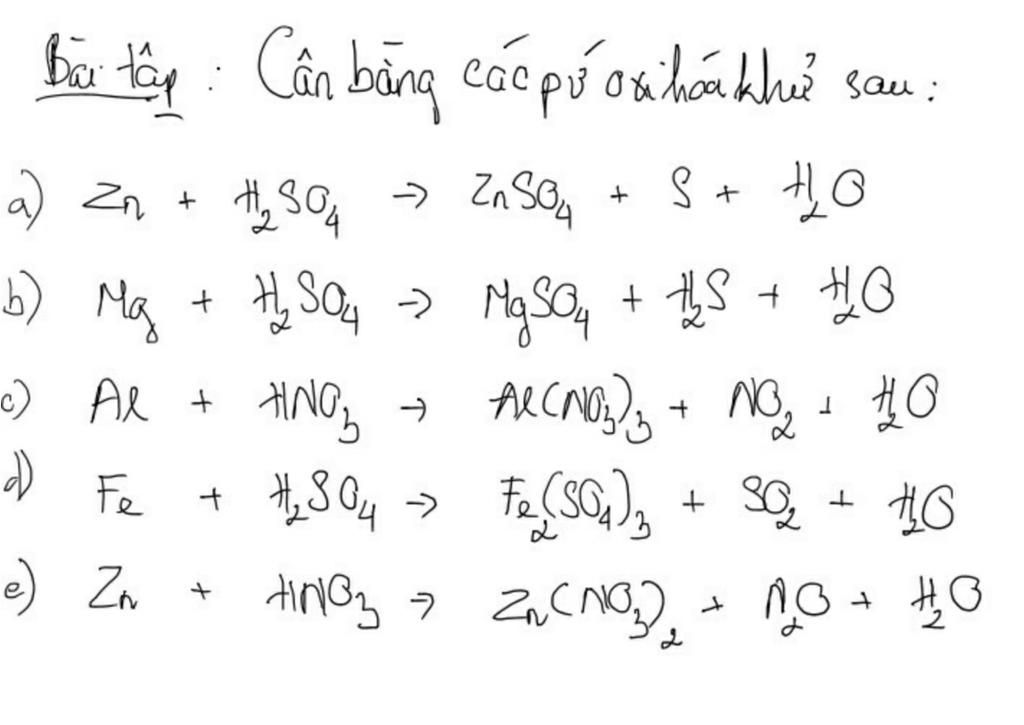 Bài tập : Cân bằng các pứ oxi hoá khử sau :
a) Zn + H₂SO₄ → ZnSO₄ + S + H₂O
b) Mg + H₂SO₄ → MgSO₄ + H₂S + H₂O
c) Al + HNO₃ → Al(NO₃)₃ + NO₂ + H₂O
d) Fe + H₂SO₄ → Fe₂(SO₄)₃ + SO₂ + H₂O
e) Zn + HNO₃ → Zn(NO₃)₂ + N₂O + H₂O